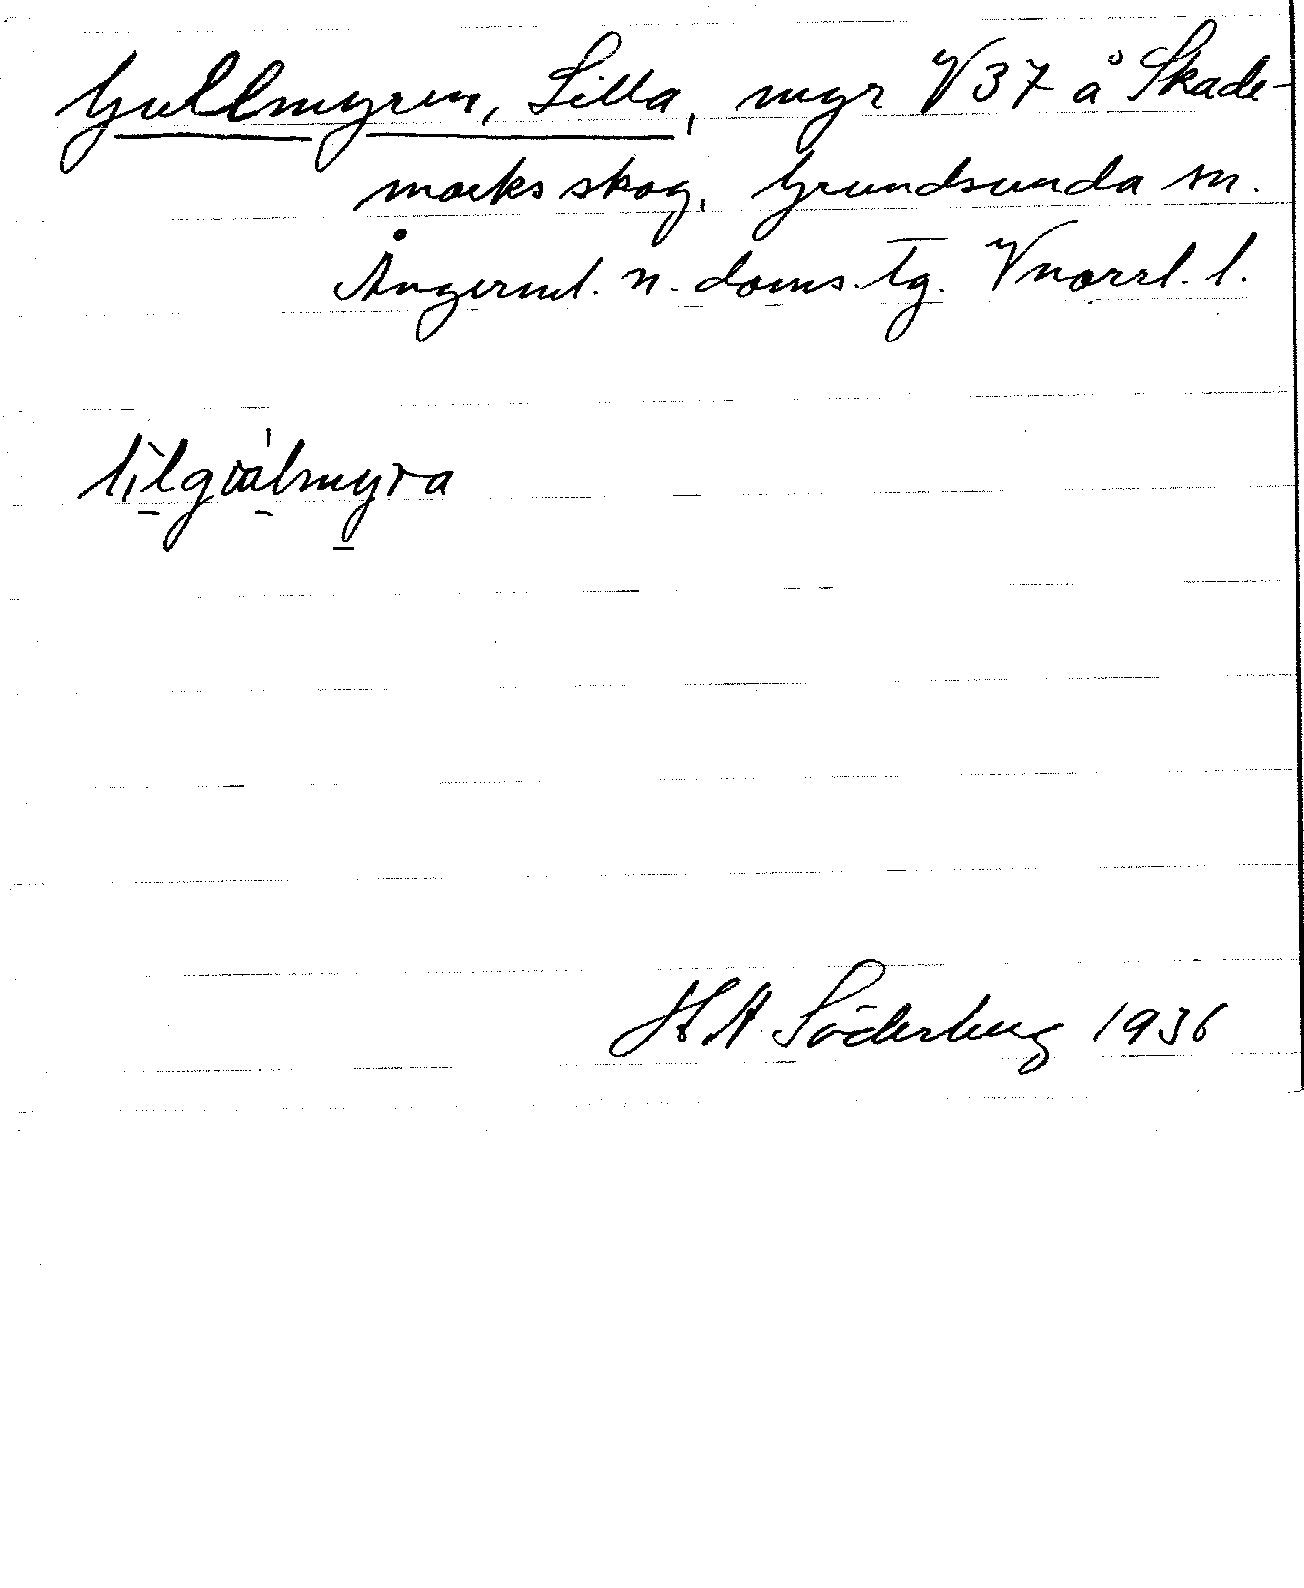 Gullmyren, Lilla, myr V37 å Skade-
marks skog, Grundsunda sn.
Ångerml. n. doms. tg. Vnorrl. l.
H A Söderberg 1936